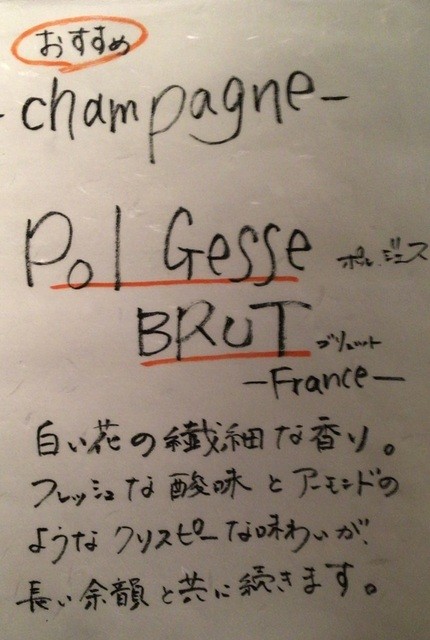 おすすめ
-champagne-
Pol Gesse ポル.ジェス
BRUT ブリュット
-France-
白い花の繊細な香り。
フレッシュな酸味とアーモンドの
ようなクリスピーな味わいが
長い余韻と共に続きます。